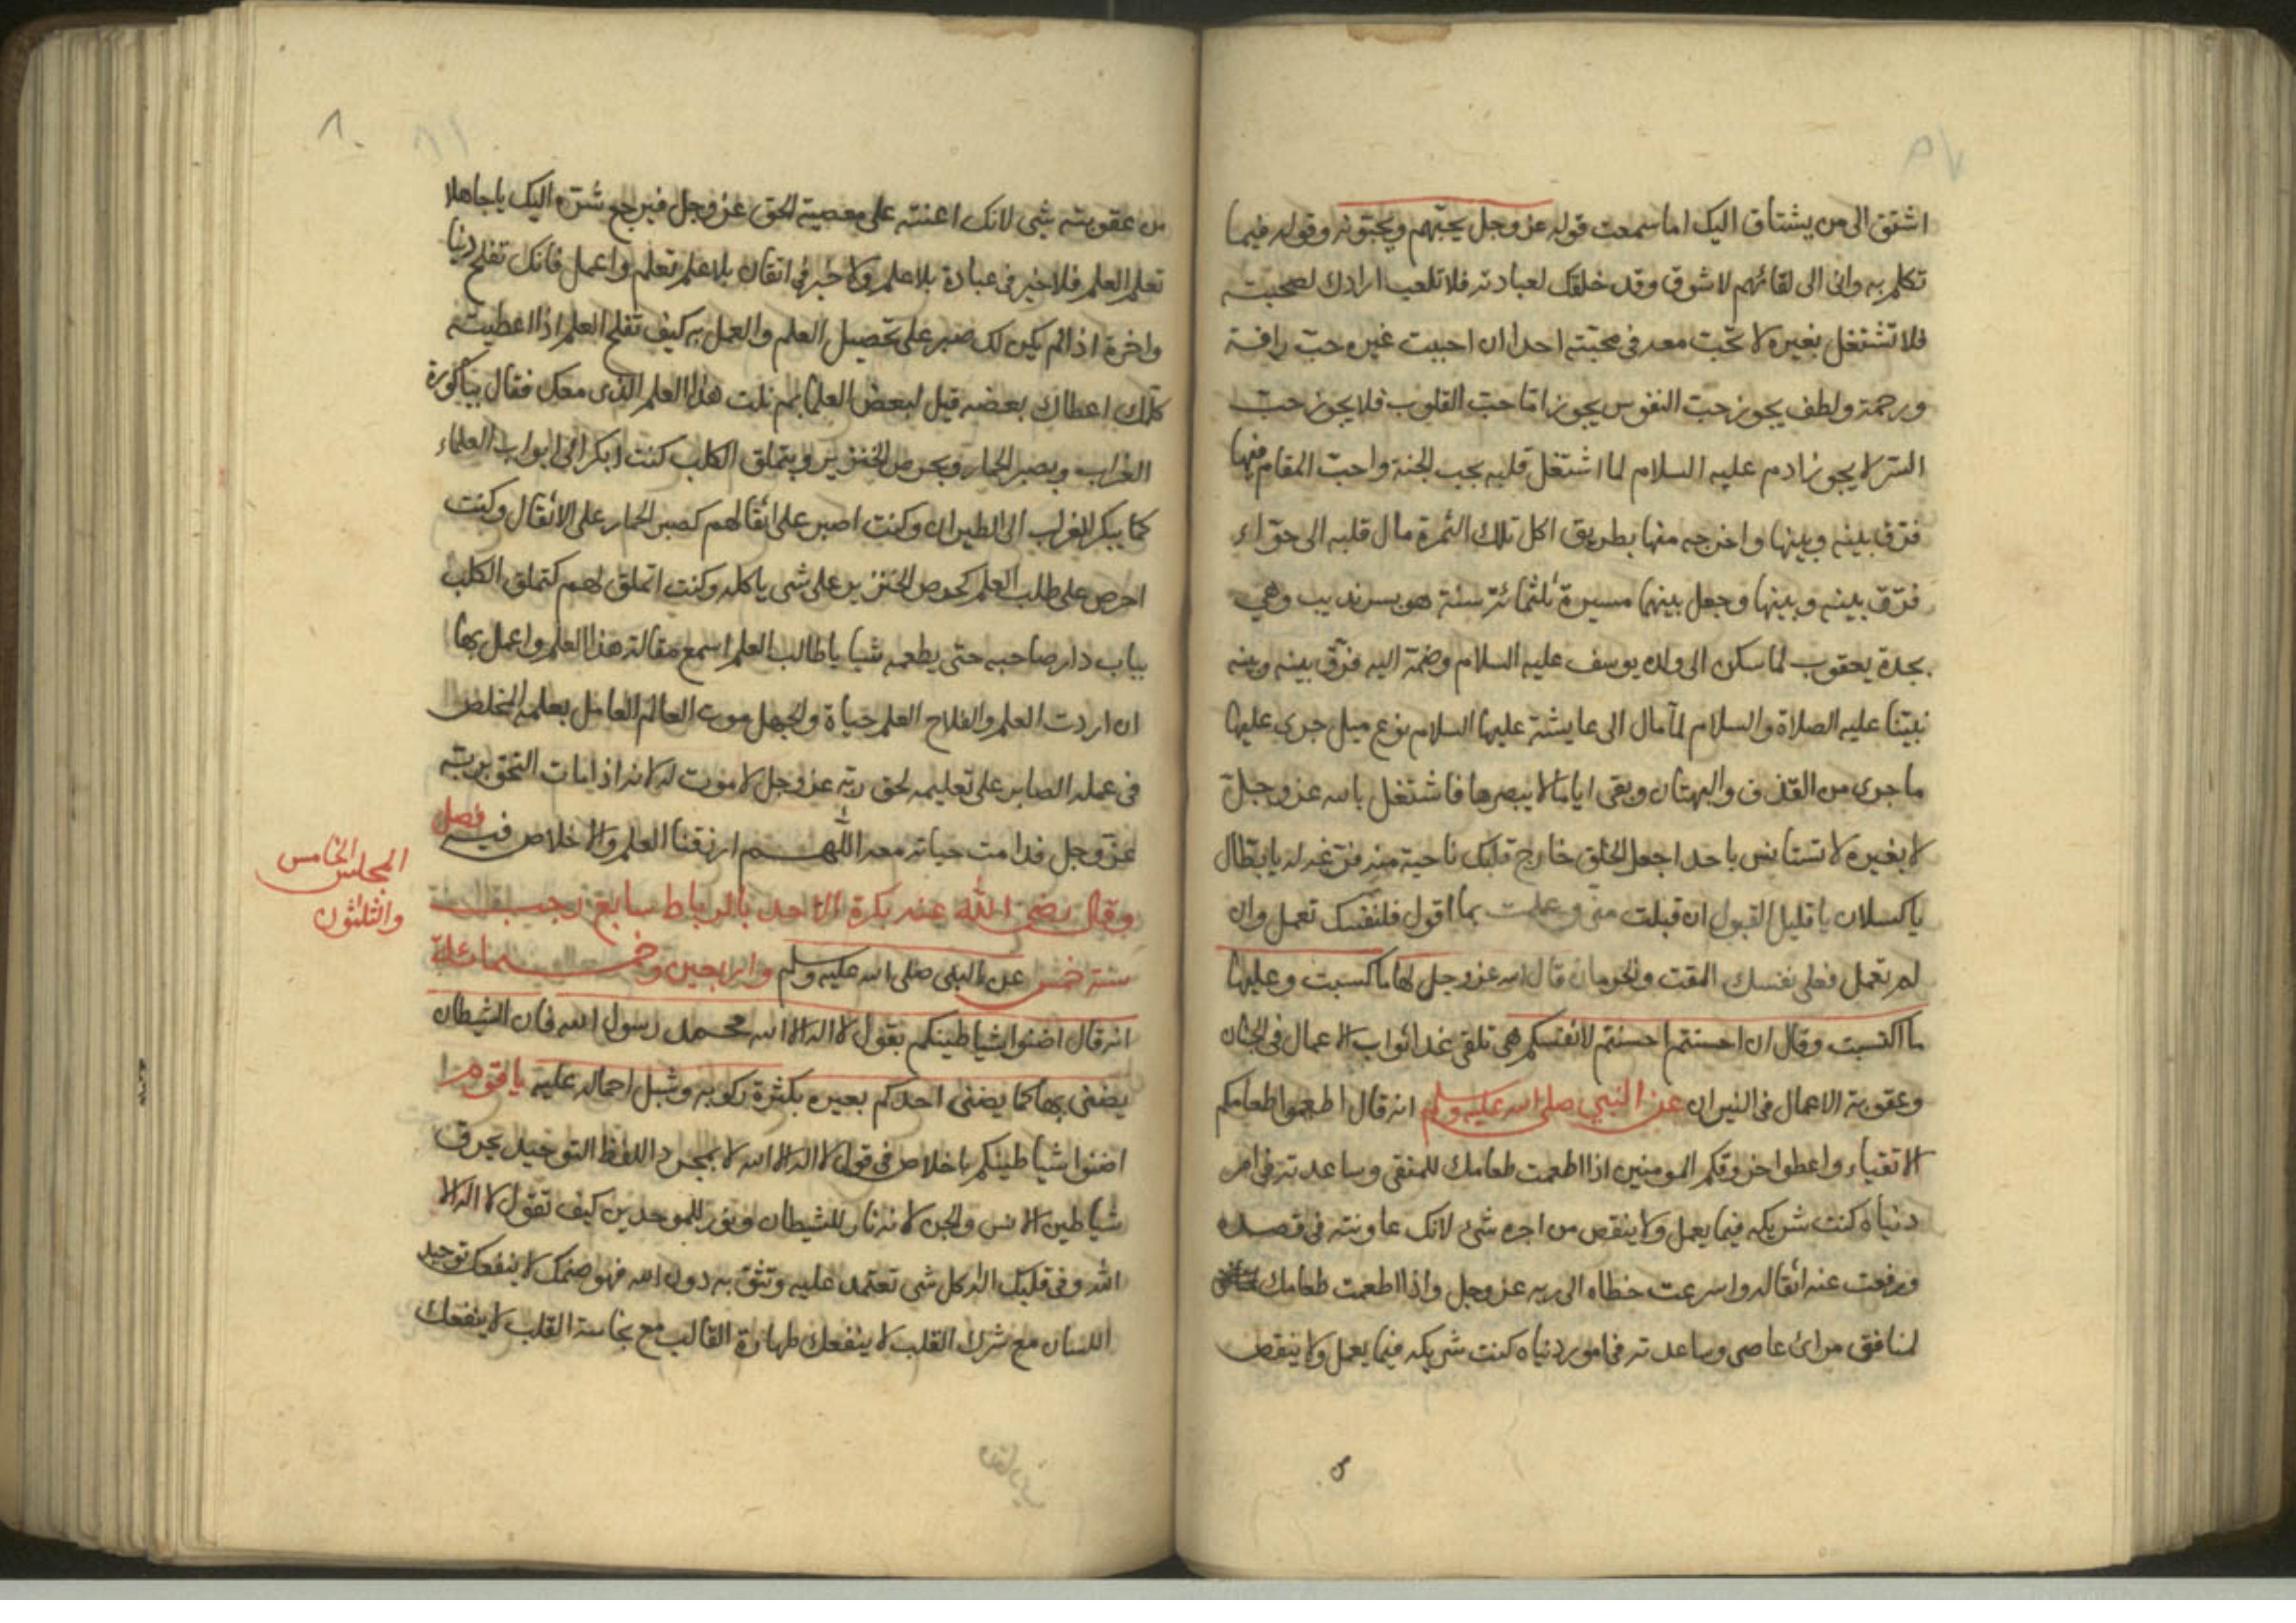 اشتق الى من يشتاق اليك اما سمعت قوله عز وجل يحبّهم ويحبّونه وقوله فيما
تكلم به وانى الى لقائهم لاشوق وقد خلقك لعبادته فلا تلعب ارادك لصحبته
فلا تشتغل بغيره لا تحبّ معه فى محبّته احدا ان احببت غيره حبّ رافة
ورحمة ولطف يجوز حبّ النفوس يجوز امّا حبّ القلوب فلا يجوز حبّ
السّر لا يجوز ادم عليه السلام لما اشتغل قلبه بحب الجنة واحبّ المقام فيها
فرّق بينه وبينها واخرجه منها بطريق اكل تلك الثمرة مال قلبه الى حوّاء
فرّق بينه وبينها وجعل بينهما مسيرة ثلثمائة سنة هو بسرنديب وهى
بجدة يعقوب لما سكن الى ولده يوسف عليه السلام وضمّه اليه فرّق بينه وبينه
نبيّنا عليه الصلاة والسلام لمّا مال الى عايشة عليها السلام نوع ميل جرى عليها
ما جرى من القذف والبهتان وبقى اياما لا يبصرها فاشتغل بالله عز وجلّ
لا بغيره لا تستانس باحد اجعل الخلق خارج قلبك ناحية منه فرّغه له يا بطّال
يا كسلان يا قليل القبول ان قبلت منى وعملت بما اقول فلنفسك تعمل وان
لم تعمل فعلى نفسك المقت والحرمان قال الله عز وجل لها ما كسبت وعليها
ما اكتسبت وقال ان احسنتم احسنتم لانفسكم هى تلقى غدا ثواب الاعمال فى الجنان
وعقوبة الاعمال فى النيران عن النبي صلى الله عليه وسلم انه قال اطعموا طعامكم
الاتقياء واعطوا خرقكم المومنين اذا اطعمت طعامك للمتقى وساعدته فى امر
دنياه كنت شريكه فيما يعمل ولا ينقص من اجره شئ لانك عاونته فى قصده
ورفعت عنه اثقاله واسرعت خطاه الى ربه عز وجل واذا اطعمت طعامك
لمنافق مرائ عاصى وساعدته فى امور دنياه كنت شريكه فيما يعمل ولا ينقص
٨٠
من عقوبته شئ لانك اعنته على معصية الحق عز وجل فيرجع شرّه اليك يا جاهلا
تعلم العلم فلا خير فى عبادة بلا علم ولا خير فى اتقان بلا علم تعلم واعمل فانك تفلح دنيا
واخرة اذا لم يكن لك صبر على تحصيل العلم والعمل به كيف تفلح العلم اذا اعطيته
كلّك اعطاك بعضه قيل لبعض العلما بم نلت هذا العلم الذى معك فقال بباكورة
الغراب وبصبر الحمار وبحرص الخنزير وبتملق الكلب كنت ابكر الى ابواب العلماء
كما يبكر الغراب الى الطيران وكنت اصبر على اثقالهم كصبر الحمار على الاثقال وكنت
احرص على طلب العلم كحرص الخنزير على شى ياكله وكنت اتملق لهم كتملق الكلب
بباب دار صاحبه حتى يطعمه شيا يا طالب العلم اسمع مقالة هذا العلم واعمل بها
ان اردت العلم والفلاح العلم حياة والجهل موت العالم العامل بعلمه المخلص
فى عمله الصابر على تعليمه لحق ربّه عز وجل لا موت له لانه اذا مات التحق بربه
عزّ وجل فدامت حياته معه اللّهم ارزقنا العلم والاخلاص فيه فصل
المجلس الخامس
والثلثون
وقال رضى الله عنه بكرة الاحد بالرباط سابع رجب
سنة خمس واربعين وخمسمائة عن النبى صلى الله عليه وسلم
انه قال اضنوا شياطينكم بقول لا اله الا الله محمد رسول الله فان الشيطان
يضنى بها كما يضنى احدكم بعيره بكثرة ركوبه وشيل احماله عليه يا قوم
اضنوا شياطينكم باخلاص فى قول لا اله الا الله لا بمجرد اللفظ التوحيد يحرق
شياطين الانس والجن لانه نار للشيطان ونور للموحدين كيف تقول لا اله الا
الله وفى قلبك اله كل شى تعتمد عليه وتثق به دون الله فهو صنمك لا ينفعك توحيد
اللسان مع شرك القلب لا ينفعك طهارة القالب مع نجاسة القلب لا ينفعك